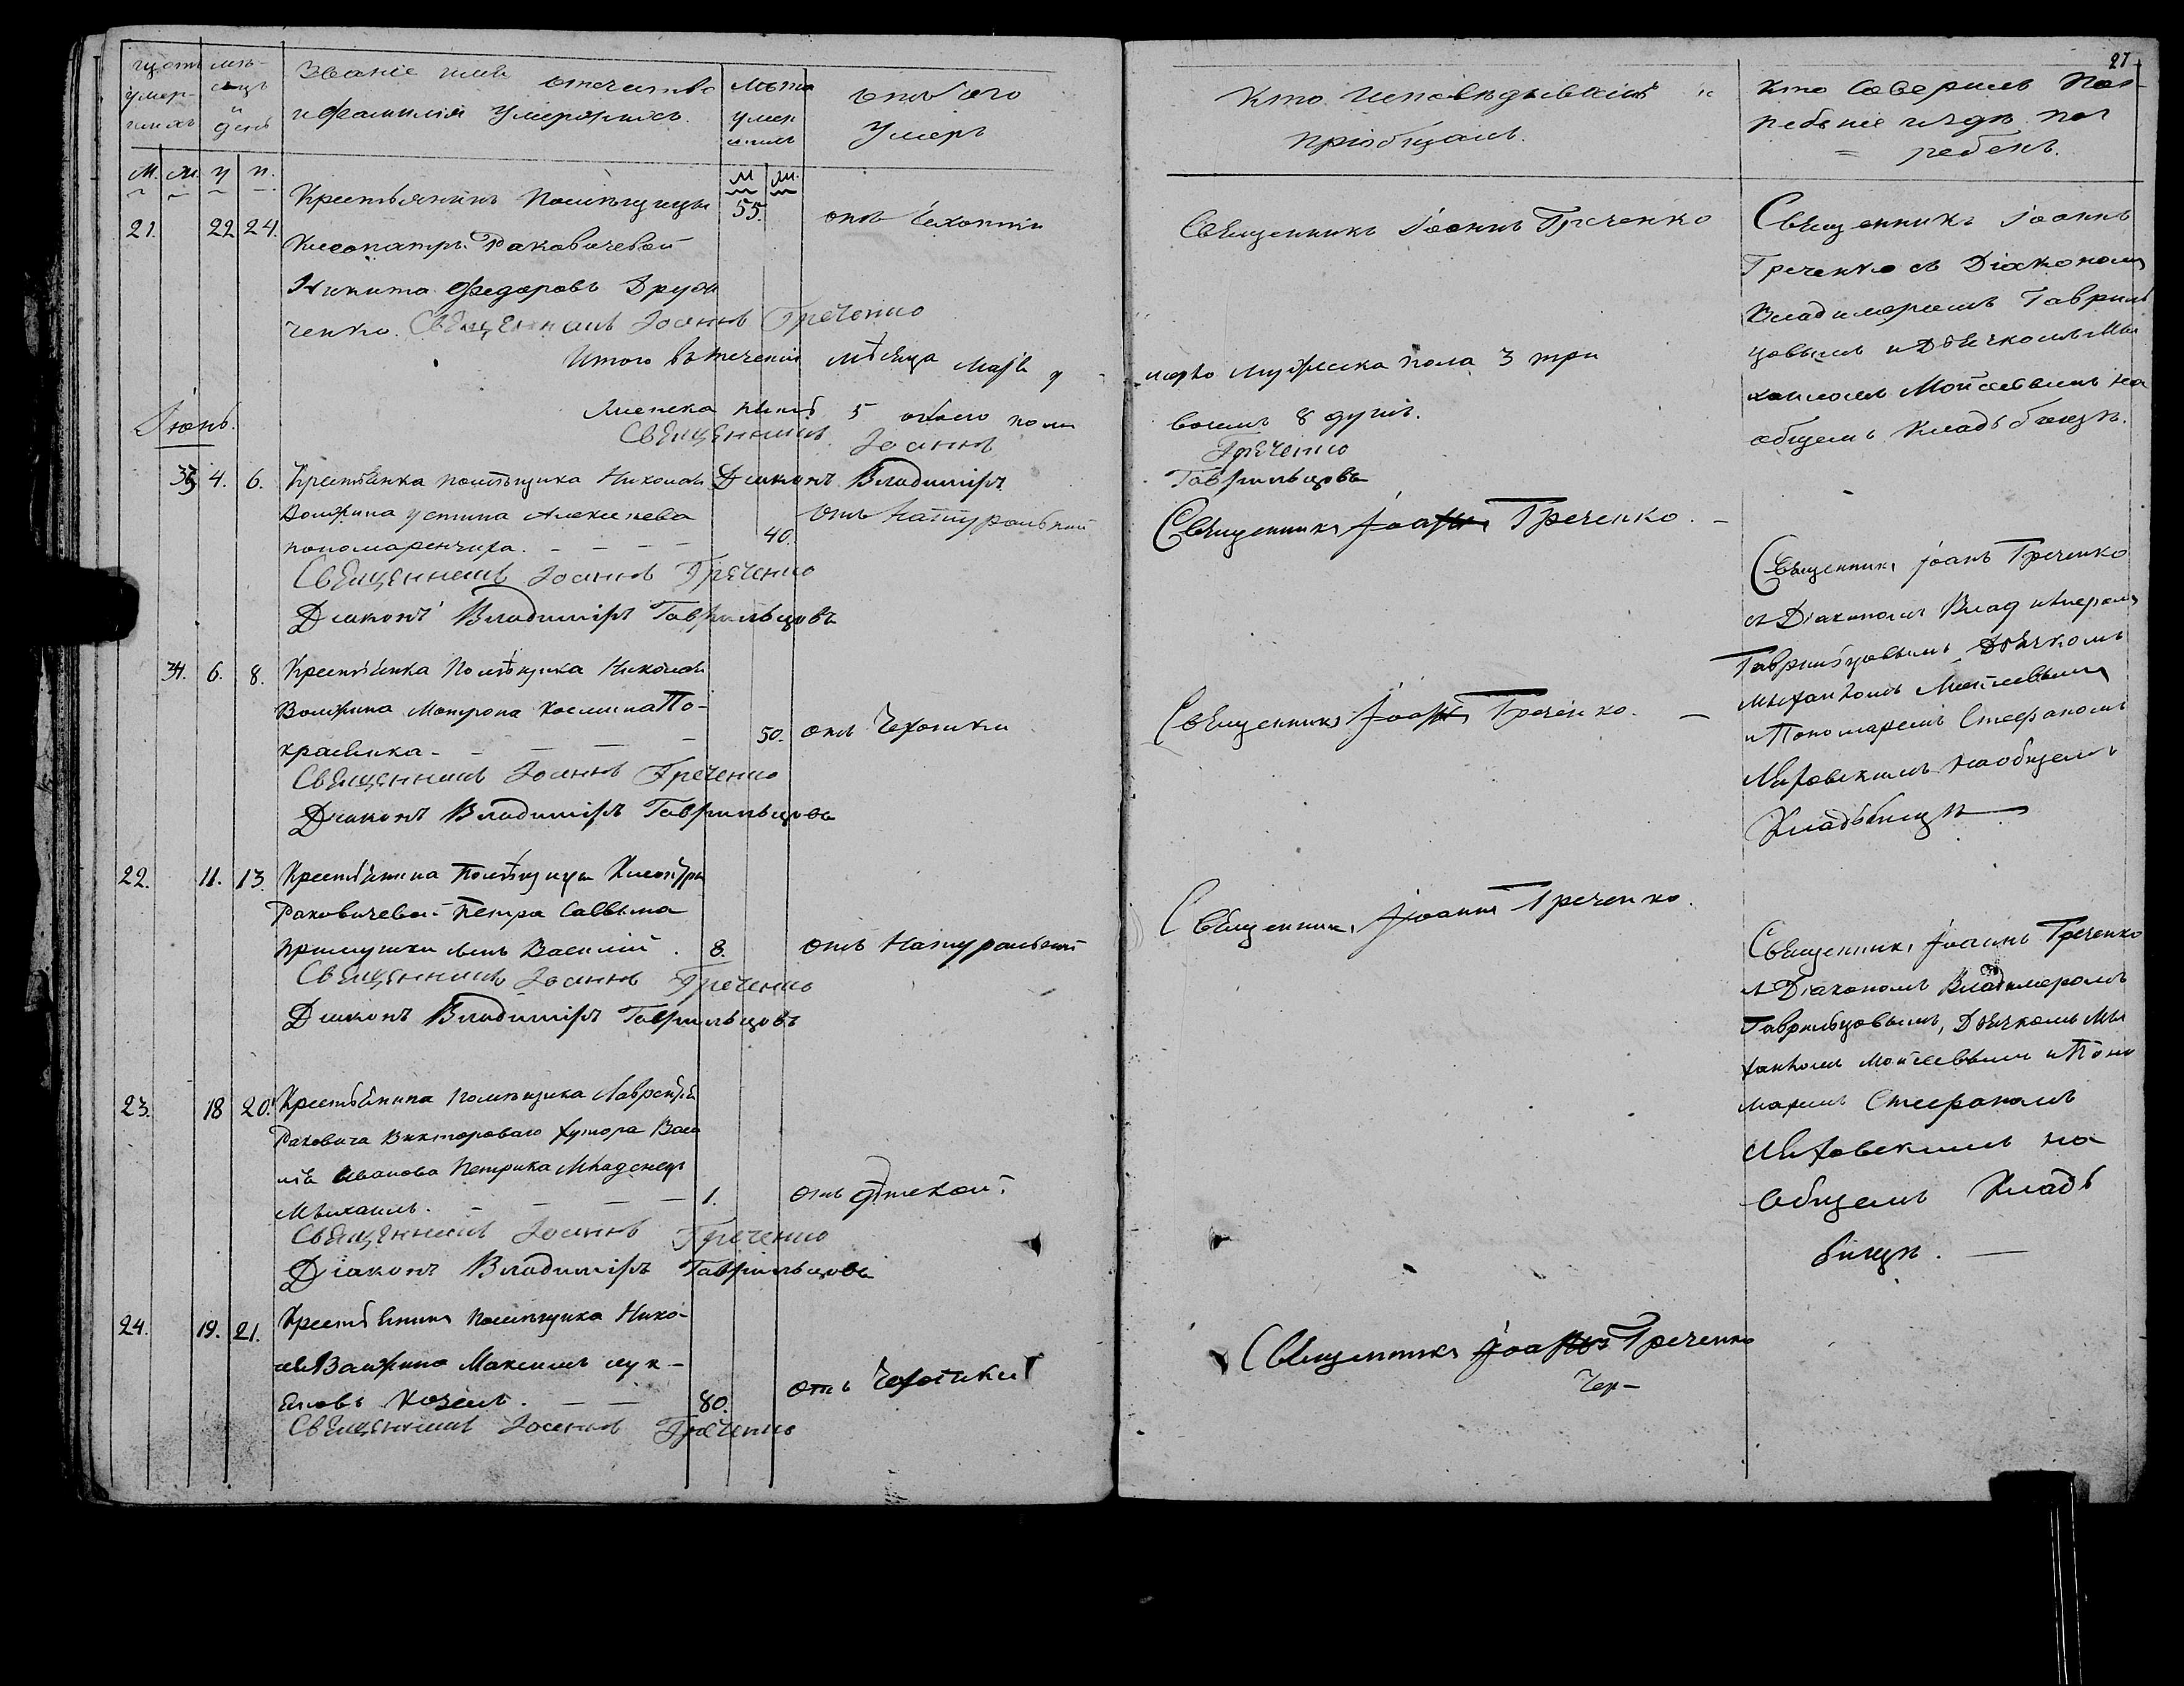 щотъ умер-
шихъ
мѣ-
сяцъ
и
день
Званіе имя отечество
и фамилія Умершихъ.
Лѣта
умер
шихъ
отъ чего
Умеръ
М. Ж. У П.
М Ж.
21. 22 24.
Крестьянинъ Помѣщицы
55.
отъ Чахотки
Клеопатры Раковичевой
Никита Федоровъ
ченко. Священникъ Іоаннъ Греченко
Итого въ теченіи мѣсяца Маія
Женска 5 обоего пола
Священникъ Іоаннъ
Іюнь.
33 4. 6. Крестьянка помѣщика Николая Діаконъ Владиміръ
Волжина устина Алексѣева
отъ Натуральной
пономаренчиха. 40.
Священникъ Іоаннъ Греченко
Діаконъ Владиміръ Гаврильцовъ
34. 6. 8. Крестьянка Помѣщика Николая
Волжина Матрона Космина По-
50. отъ Чахотки
Священникъ Іоаннъ Греченко
Діаконъ Владиміръ Гаврильцовъ
22. 11. 13. Крестьянина Помѣщицы
Раковичевой Петра Саввина
сынъ Василій. 8. отъ Натуральной
Священникъ Іоаннъ Греченко
Діаконъ Владиміръ Гаврильцовъ
23. 18 20. Крестьянина помѣщика Лаврентія
Раковича Викторового хутора Васи
лія Иванова Петрика Младенецъ
Михаилъ. 1. отъ
Священникъ Іоаннъ Греченко
Діаконъ Владиміръ Гаврильцовъ
24. 19. 21. Крестьянинъ помѣщика Нико-
лая Волжина Максимъ лук-
яновъ Козелъ. 80. отъ Чахотки
Священникъ Іоаннъ Греченко
27
Кто Исповѣдывалъ и
пріобщалъ.
Кто Совершилъ Пог-
ребеніе и гдѣ пог
= ребенъ.
Священникъ Іоаннъ Греченко
мужеска пола 3 три
восемъ 8 душъ.
Греченко
Гаврильцовъ
Священникъ Іоаннъ Греченко. –
Священникъ Іоаннъ Греченко. –
Священникъ Іоаннъ Греченко.
Священникъ Іоаннъ Греченко
Чер-
Священникъ Іоаннъ
Греченко съ Діакономъ
Владимеромъ Гавриль
цовымъ и Дьячкомъ Ми
хаиломъ Мойсеевымъ на
общемъ Кладьбищѣ.
Священникъ Іоанъ Греченко
съ Діакономъ Владимеромъ
Гаврильцовымъ Дьячкомъ
Михаиломъ Мойсеевымъ
и Пономаремъ Стефаномъ
на общемъ
Кладьбищѣ
Священникъ Іоаннъ Греченко
съ Діакономъ Владимеромъ
Гаврильцовымъ, Дьячкомъ Ми
хаиломъ Мойсеевымъ и Поно
маремъ Стефаномъ
на
Общемъ Кладь
бищѣ. —